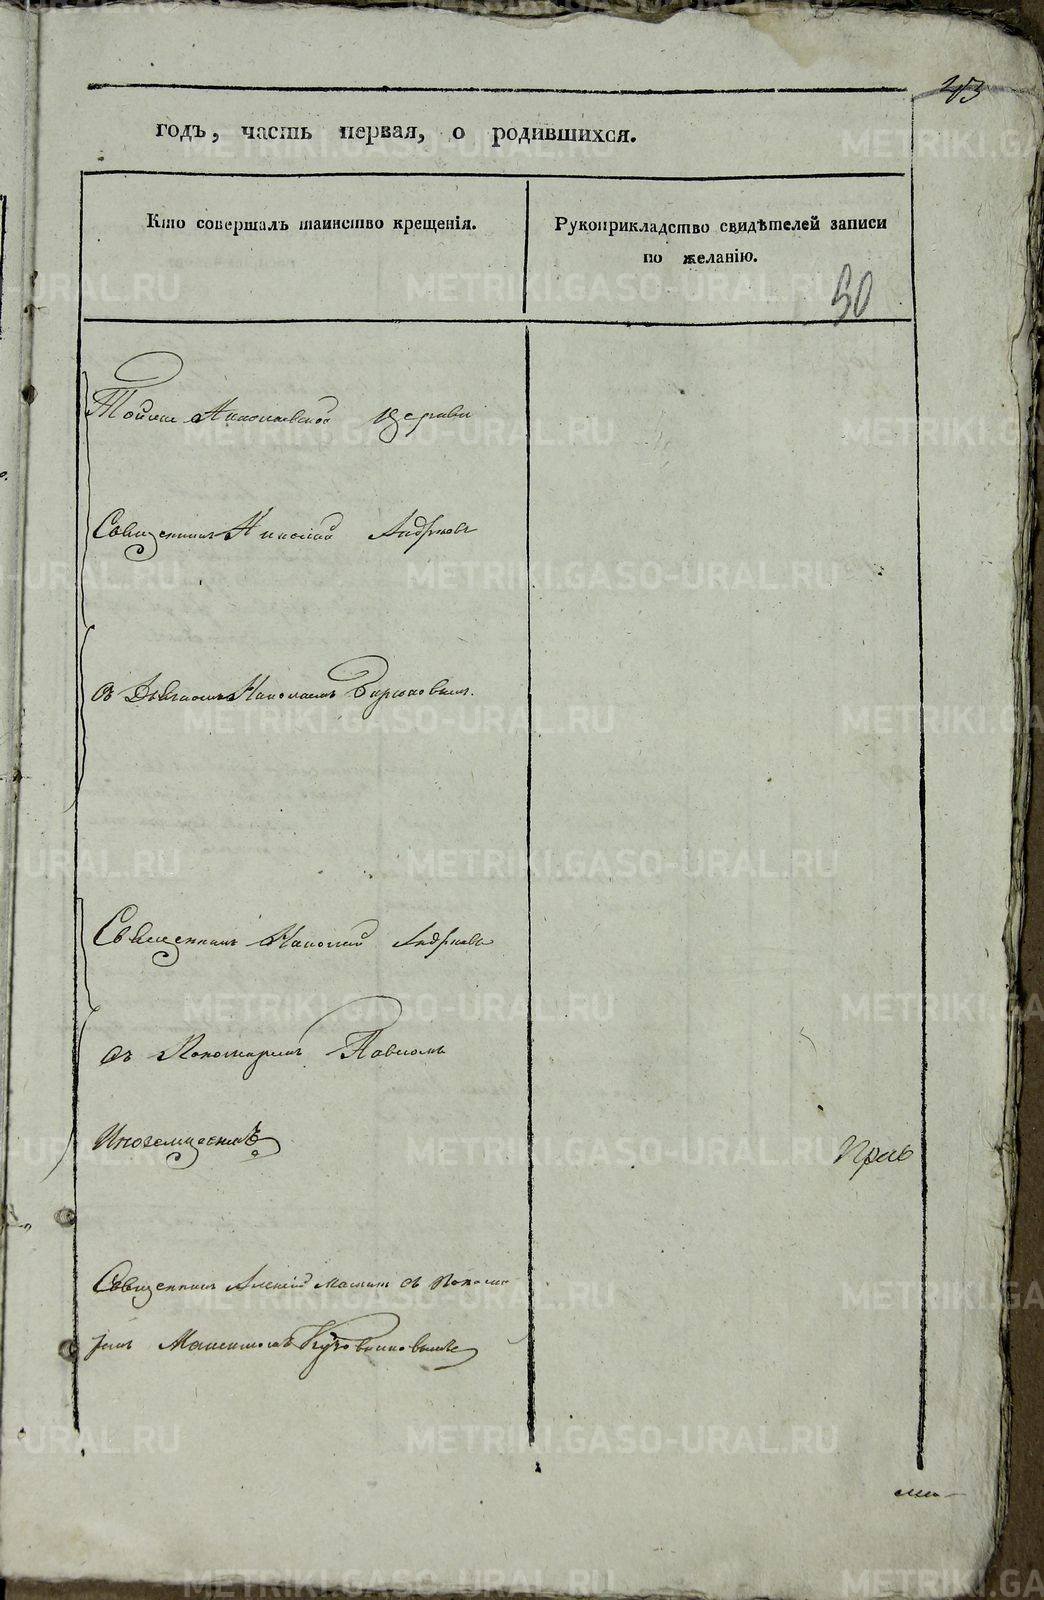 43
годъ, часть первая, о родившихся.
Кто совершалъ таинство крещенія.
Рукоприкладство свидѣтелей записи
по желанію.
50
Николаевской церкви
Священникъ Николай Андреевъ
съ Николаемъ Бирюковымъ.
Священникъ Николай Андреевъ
съ Пономаремъ Павломъ
Иноземцевымъ
Священникъ Алексій съ Понома
ремъ Максимомъ
METRIKI.GASO-URAL.RU